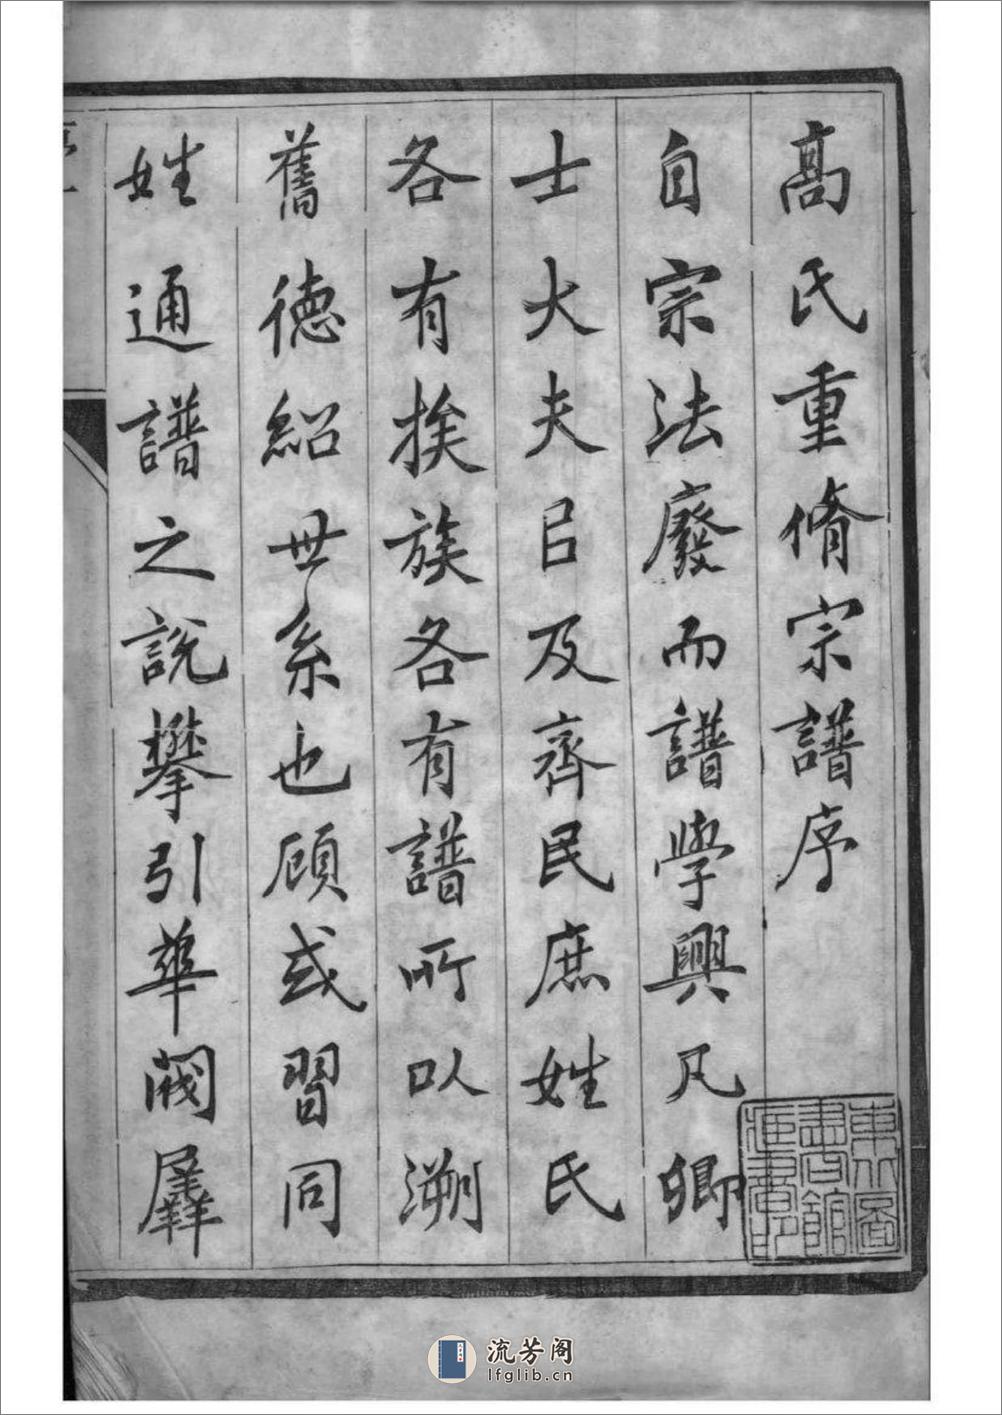 高氏重脩宗譜序
自宗法廢而譜學興凡卿
士大夫㠯及齊民庶姓氏
各有挨族各有譜所以溯
舊德紹世系也顧或習同
姓通譜之說攀引華閥羼
東北圖書館所藏善本
流芳阁
lfglib.cn